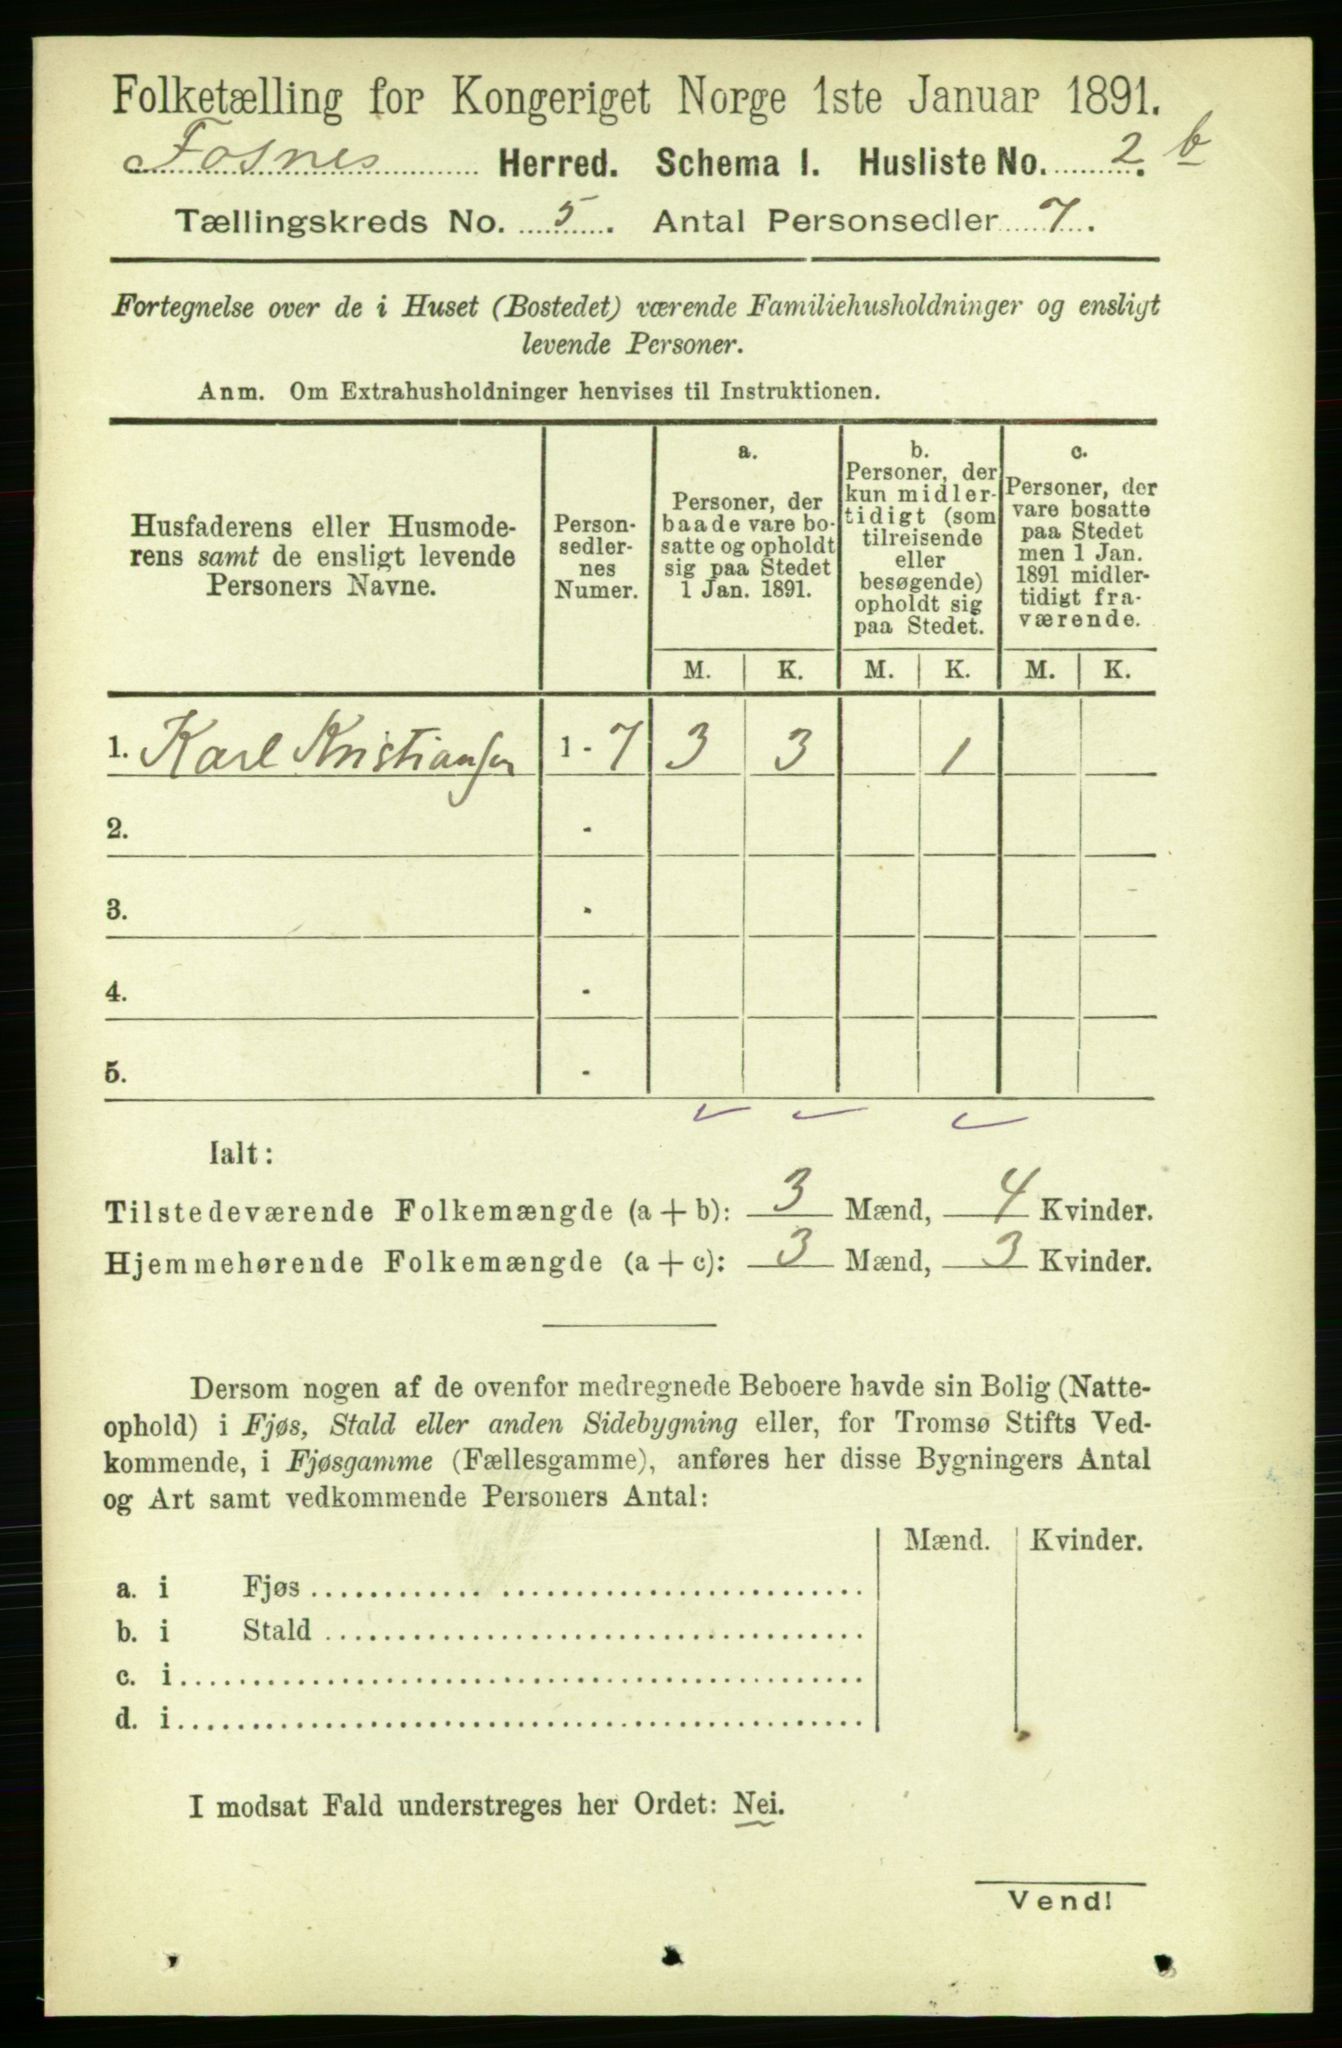 Folketælling for Kongeriget Norge 1ste Januar 1891.
Fosnes Herred. Schema I. Husliste No. 2. b
Tællingskreds No. 5. Antal Personsedler 7.
Fortegnelse over de i Huset (Bostedet) værende Familiehusholdninger og ensligt
levende Personer.
Anm. Om Extrahusholdninger henvises til Instruktionen.
Husfaderens eller Husmode-
rens samt de ensligt levende
Personers Navne.
Person-
sedler-
nes
Numer.
a.
Personer, der
baade vare bo-
satte og opholdt
sig paa Stedet
1 Jan. 1891.
b.
Personer, der
kun midler-
tidigt (som
tilreisende
eller
besøgende)
opholdt sig
paa Stedet.
c.
Personer, der
vare bosatte
paa Stedet
men 1 Jan.
1891 midler-
tidigt fra-
værende.
M. K. M. K. M. K.
1. Karl Kristiansen 1 - 7 3 3 1
2. -
3. -
4. -
5. -
Ialt:
Tilstedeværende Folkemængde (a + b): 3 Mænd, 4 Kvinder.
Hjemmehørende Folkemængde (a + c): 3 Mænd, 3 Kvinder.
Dersom nogen af de ovenfor medregnede Beboere havde sin Bolig (Natte-
ophold) i Fjøs, Stald eller anden Sidebygning eller, for Tromsø Stifts Ved-
kommende, i Fjøsgamme (Fællesgamme), anføres her disse Bygningers Antal
og Art samt vedkommende Personers Antal:
Mænd. Kvinder.
a. i Fjøs
b. i Stald
c. i
d. i
I modsat Fald understreges her Ordet: Nei.
Vend!